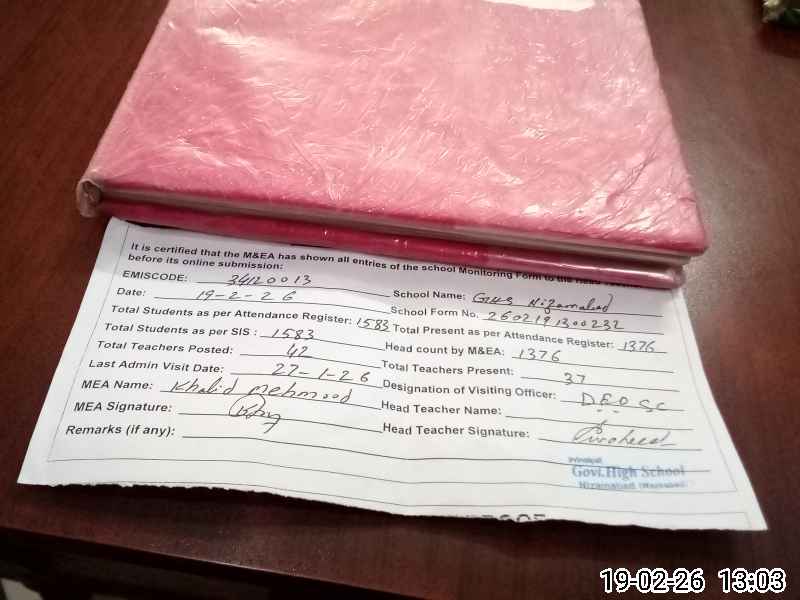 It is certified that the M&EA has shown all entries of the school Monitoring Form to the Head
before its online submission:
EMISCODE: 34120013
School Name: GHS Nizamabad
Date: 19-2-26
School Form No. 2602191300232
Total Students as per Attendance Register: 1583
Total Present as per Attendance Register: 1376
Total Students as per SIS : 1583
Head count by M&EA: 1376
Total Teachers Posted: 42
Total Teachers Present: 37
Last Admin Visit Date: 27-1-26
Designation of Visiting Officer: DEO SC
MEA Name: Khalid Mehmood
Head Teacher Name:
MEA Signature:
Head Teacher Signature:
Remarks (if any):
Principal
Govt. High School
Nizamabad (Wazirabad)
19-02-26 13:03